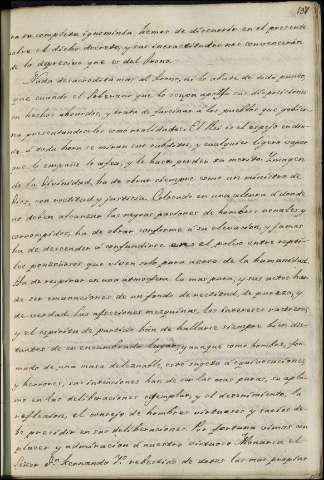 137
na su completa ignominia. hemos de discurrir en el presente
sobre el dicho decreto, y sus inexactitudes nos convenceran
de lo depresivo que es del trono.
Nada desacredita mas al trono, ni lo abate de todo punto,
que cuando el Soberano que lo ocupa apolla sus disposiciones
en hechos absurdos, y trata de fascinar a los pueblos que gobier-
na, presentandoseles como realidades. El Rei es el espejo en don-
de á toda hora se miran sus subditos, y cualquier ligero vapor
que lo empañe lo afea, y le hace perder su merito. Imagen
de la Divinidad, ha de obrar siempre como un ministro de
Dios, con rectitud y justicia. Colocado en una altura á donde
no deben alcanzar las negras pasiones de hombres venales y
corrompidos, ha de obrar conforme á su elevacion, y jamas
ha de descender á confundirse en el polvo entre repti-
les ponzoñosos que viven solo para azote de la humanidad.
Ha de respirar en una atmosfera la mas pura, y sus actos han
de ser emanaciones de un fondo de rectitud, de pureza, y
de verdad. Las afecciones mezquinas, los intereses rastreros,
y el espiritu de partido han de hallarse siempre bien dis-
tantes de su encumbrado lugar, y aunque como hombre, for-
mado de una masa deleznable, esté sugeto á equivocaciones
y herrores, sus intenciones han de ser las mas puras, su aplo-
mo en las deliberaciones egemplar, y el detenimiento, la
reflexion, el consejo de hombres virtuosos y sabios de-
be presidir en sus deliberaciones. Por fortuna vimos con
placer y admiracion á nuestro virtuoso Monarca el
Señor Dn. Fernando 7o. rebestido de todas las mas propias